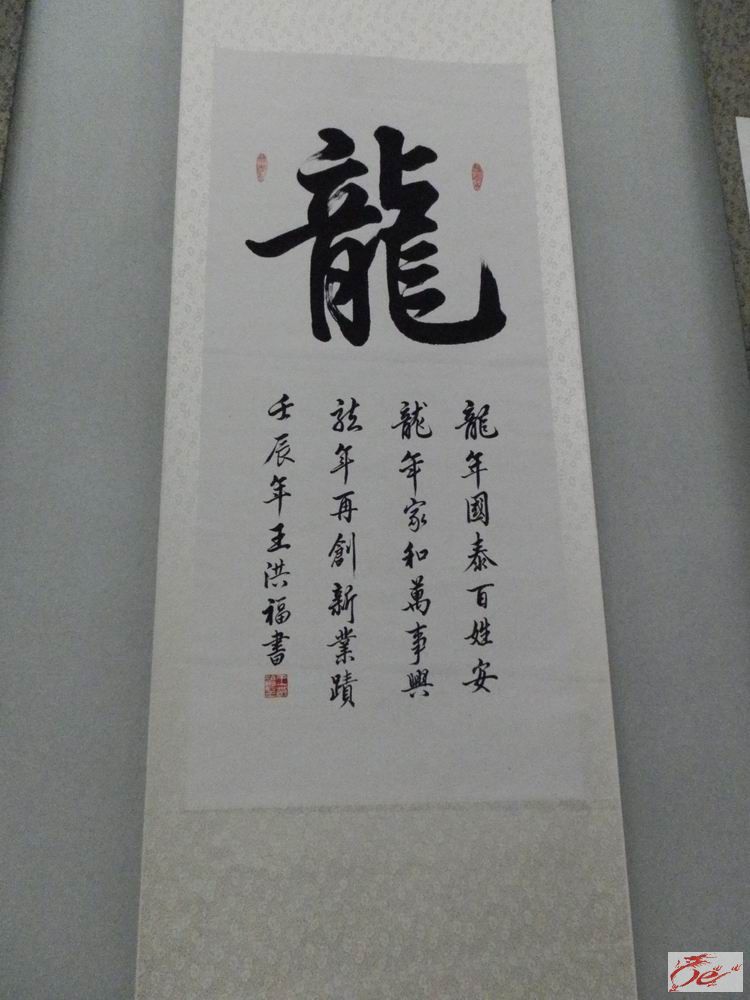 龍
龍年國泰百姓安
龍年家和萬事興
龍年再創新業蹟
壬辰年王洪福書